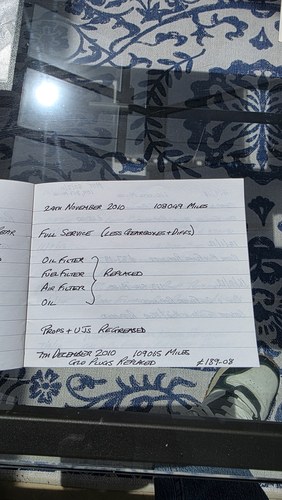 24TH NOVEMBER 2010 109049 MILES
FULL SERVICE (LESS GEARBOXES + DIFFS)
OIL FILTER
FUEL FILTER
AIR FILTER
OIL
REPLACED
PROPS + UJS REGREASED
7TH DECEMBER 2010 109065 MILES
GLO PLUGS REPLACED £189-08